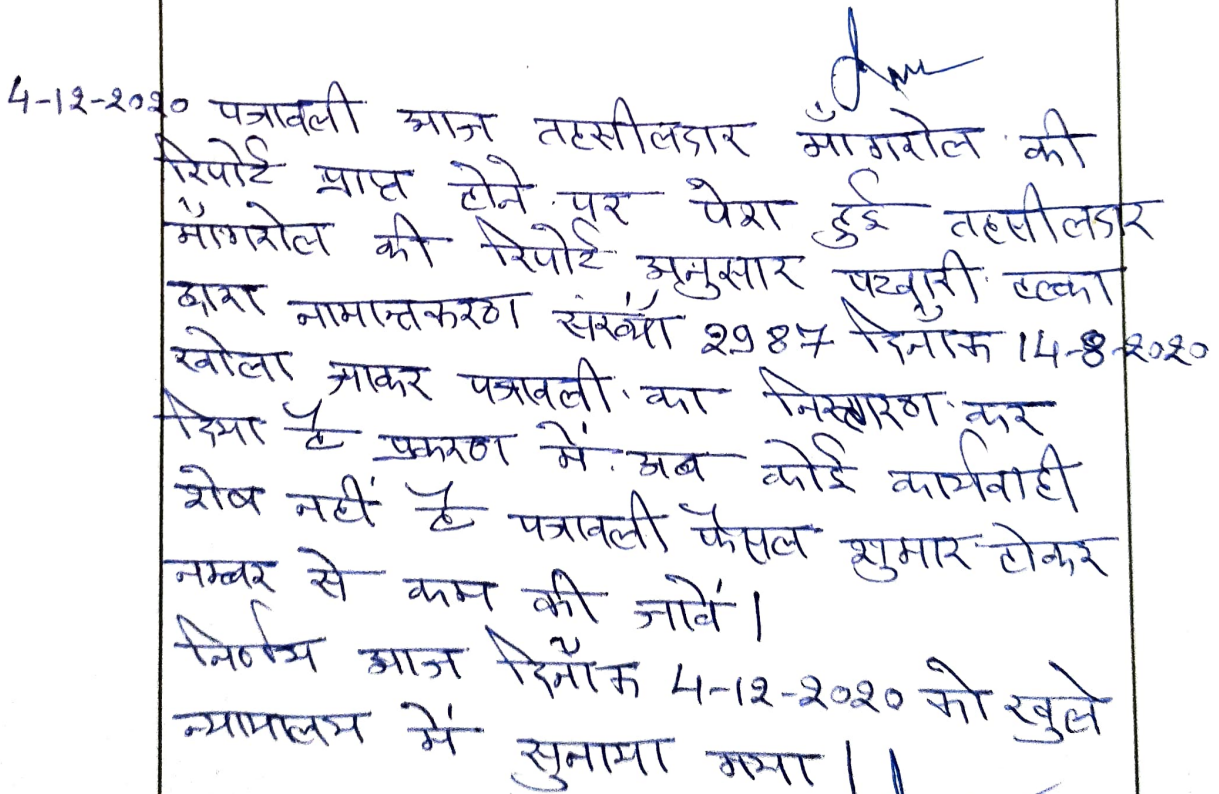 4-12-2020 पत्रावली आज तहसीलदार माँगरोल की
रिपोर्ट प्राप्त होने पर पेश हुई तहसीलदार
माँगरोल की रिपोर्ट अनुसार पटवारी हल्का
द्वारा नामान्तकरण संख्याँ 2987 दिनाँक 14-8-2020
खोला जाकर पत्रावली का निस्तारण कर
दिया है प्रकरण में अब कोई कार्यवाही
शेष नहीं है पत्रावली फैसल शुमार होकर
नम्बर से कम की जावें।
निर्णय आज दिनाँक 4-12-2020 को खुले
न्यायालय में सुनाया गया।